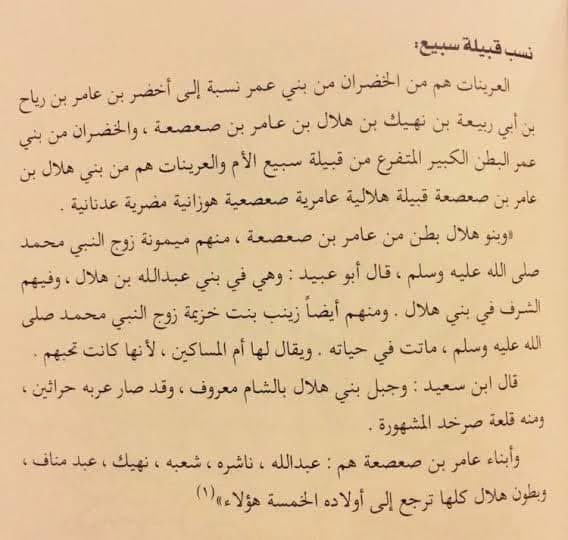 نسب قبيلة سبيع:
العرينات هم من الخضران من بني عمر نسبة إلى أخضر بن عامر بن رياح
بن أبي ربيعة بن نهيك بن هلال بن عامر بن صعصعة ، والخضران من بني
عمر البطن الكبير المتفرع من قبيلة سبيع الأم والعرينات هم من بني هلال بن
عامر بن صعصعة قبيلة هلالية عامرية صعصعية هوزانية مضرية عدنانية .
«وبنو هلال بطن من عامر بن صعصعة ، منهم ميمونة زوج النبي محمد
صلى الله عليه وسلم ، قال أبو عبيد : وهي في بني عبدالله بن هلال ، وفيهم
الشرف في بني هلال . ومنهم أيضاً زينب بنت خزيمة زوج النبي محمد صلى
الله عليه وسلم ، ماتت في حياته . ويقال لها أم المساكين ، لأنها كانت تحبهم .
قال ابن سعيد : وجبل بني هلال بالشام معروف ، وقد صار عربه حراثين ،
ومنه قلعة صرخد المشهورة .
وأبناء عامر بن صعصعة هم : عبدالله ، ناشره ، شعبه ، نهيك ، عبد مناف ،
وبطون هلال كلها ترجع إلى أولاده الخمسة هؤلاء»(١)